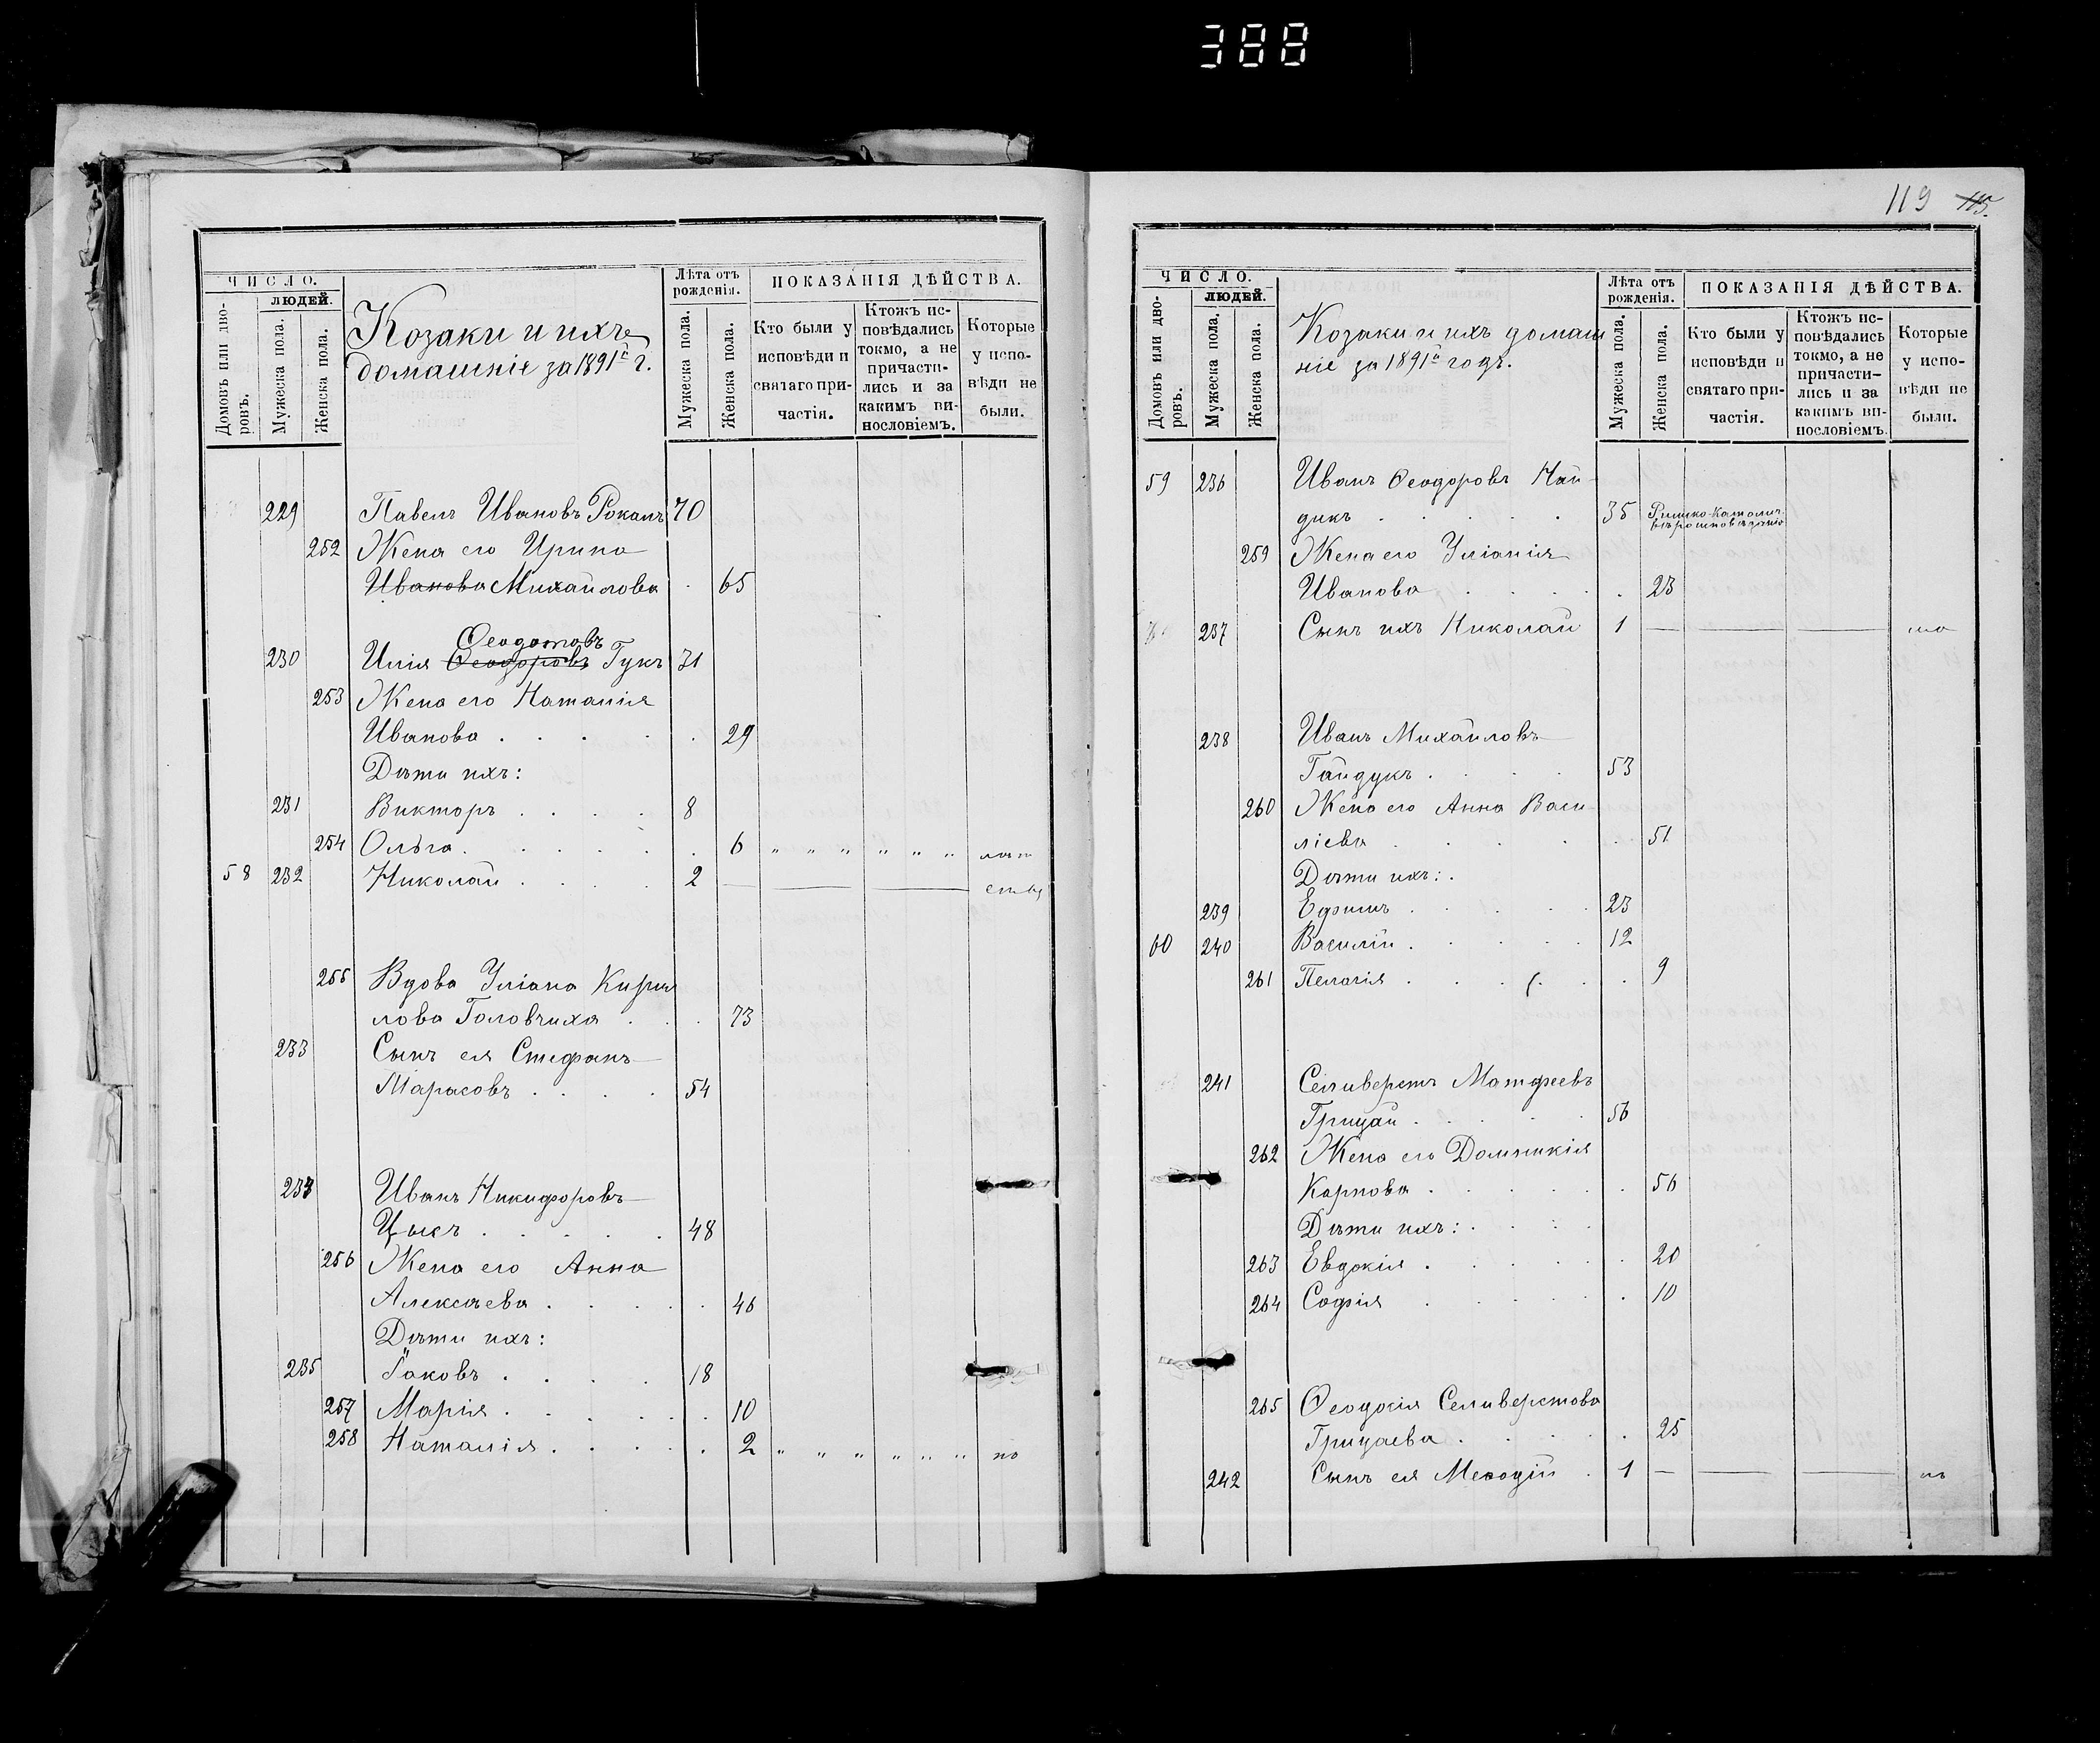 388
119 115.
ЧИСЛО.
ЛЮДЕЙ.
Домовъ или дворовъ.
Мужеска пола.
Женска пола.
Козаки и ихъ
домашніе за 1891й г.
Лѣта отъ рожденія.
Мужеска пола.
Женска пола.
ПОКАЗАНІЯ ДѢЙСТВА.
Кто были у исповѣди и святаго причастія.
Ктожъ исповѣдались токмо, а не причастились и за какимъ винословіемъ.
Которые у исповѣди не были.
229 Павелъ Ивановъ Рокалъ 70
252 Жена его Ирина
Иванова Михайлова . 65
Ѳеодотовъ
230 Илія Ѳеодоровъ Гукъ 31
253 Жена его Наталія
Иванова . . . . . 29
Дѣти ихъ:
231 Викторъ . . . . 8
254 Ольга . . . . . . 6 " " " " " "
58 232 Николай . . . . 2
255 Вдова Уліана Кирил
лова Головчиха . . . 73
233 Сынъ ея Стефанъ
Тарасовъ . . . . 54
234 Иванъ Никифоровъ
Цыкъ . . . . . 48
256 Жена его Анна
Алексѣева . . . . . 46
Дѣти ихъ:
235 Іаковъ . . . . 18
257 Марія . . . . . . 10
258 Наталія . . . . . 2 " " " " " "
ЧИСЛО.
ЛЮДЕЙ.
Домовъ или дворовъ.
Мужеска пола.
Женска пола.
Козаки и ихъ домаш
ніе за 1891й годъ.
Лѣта отъ рожденія.
Мужеска пола.
Женска пола.
ПОКАЗАНІЯ ДѢЙСТВА.
Кто были у исповѣди и святаго причастія.
Ктожъ исповѣдались токмо, а не причастились и за какимъ винословіемъ.
Которые у исповѣди не были.
59 236 Иванъ Ѳеодоровъ Най-
дикъ . . . . . 35 Римско-Католич.
вѣроисповѣданія
259 Жена его Уліанія
Иванова . . . . . 23
237 Сынъ ихъ Николай 1
238 Иванъ Михайловъ
Гайдукъ . . . . 53
260 Жена его Анна Васи-
ліева . . . . . . 51
Дѣти ихъ: .
239 Ефимъ . . . . . 23
60 240 Василій . . . . . 12
261 Пелагія . . . . . . 9
241 Селиверстъ Матфеевъ
Грицай . . . . . 56
262 Жена его Домникія
Карпова . . . . . . 56
Дѣти ихъ: . . . .
263 Евдокія . . . . . . 20
264 Софія . . . . . . 10
265 Ѳеодосія Селиверстова
Грицаева . . . . . 25
242 Сынъ ея Меѳодій . 1